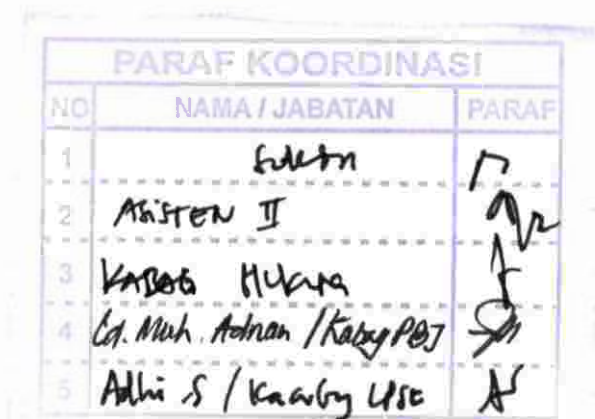 PARAF KOORDINASI
NO NAMA / JABATAN PARAF
1
2 ASISTEN II
3 KABAG HUKUM
4 Ld. Muh. Adnan / Kabag PBJ
5 Adhi .S / LPSE